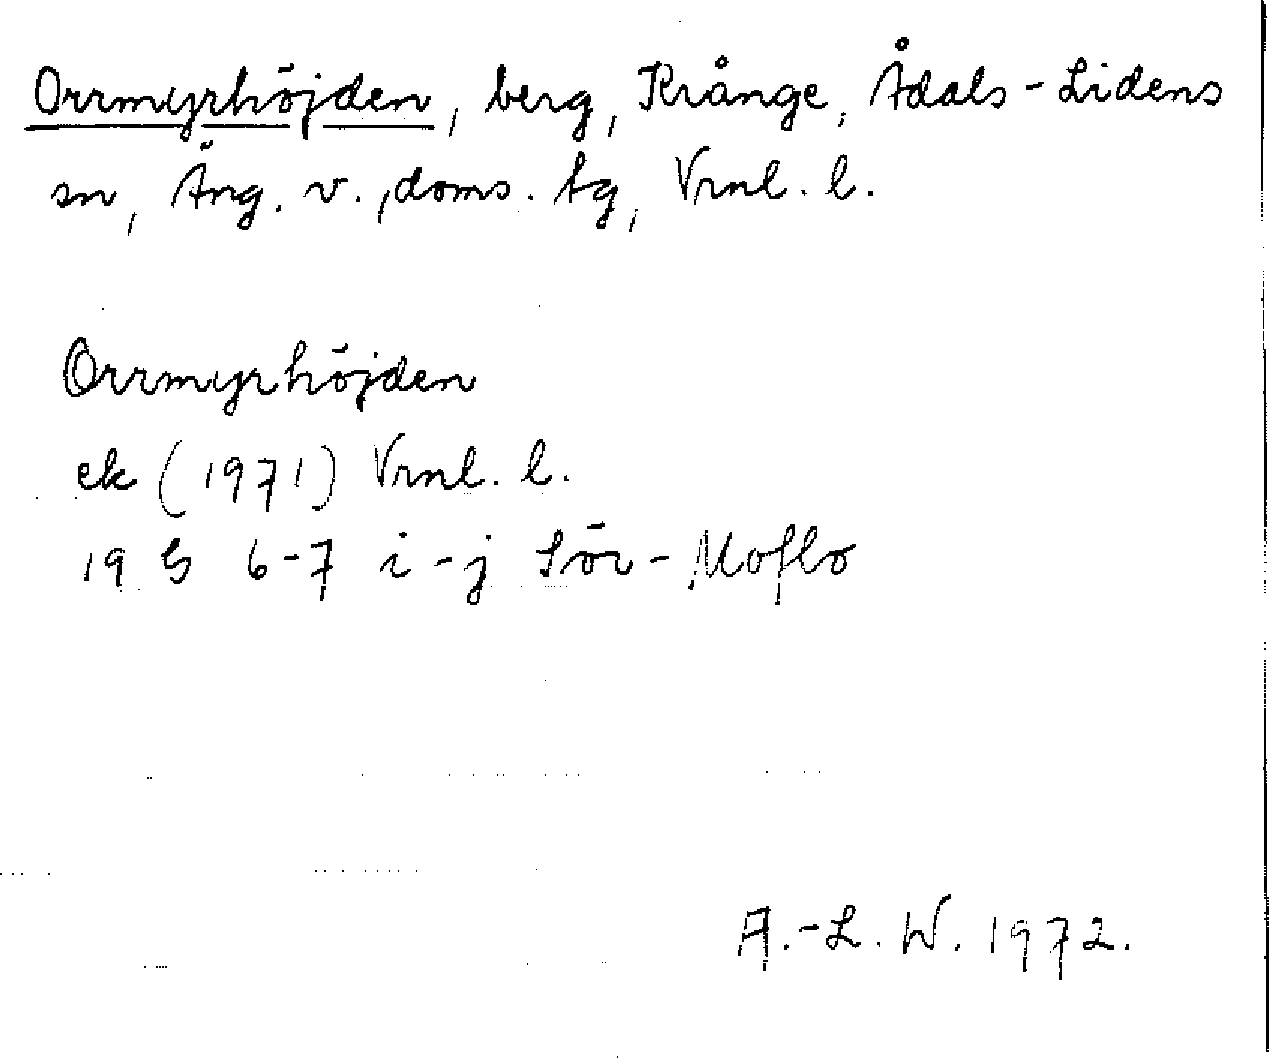 Orrmyrhöjden, berg, Krånge, Ådals-Lidens
sn, Äng. v., doms. tg, Vrnl. l.
Orrmyrhöjden
ek (1971) Vrnl. l.
19 G 6-7 i-j Sör-Moflo
A.-L. W. 1972.